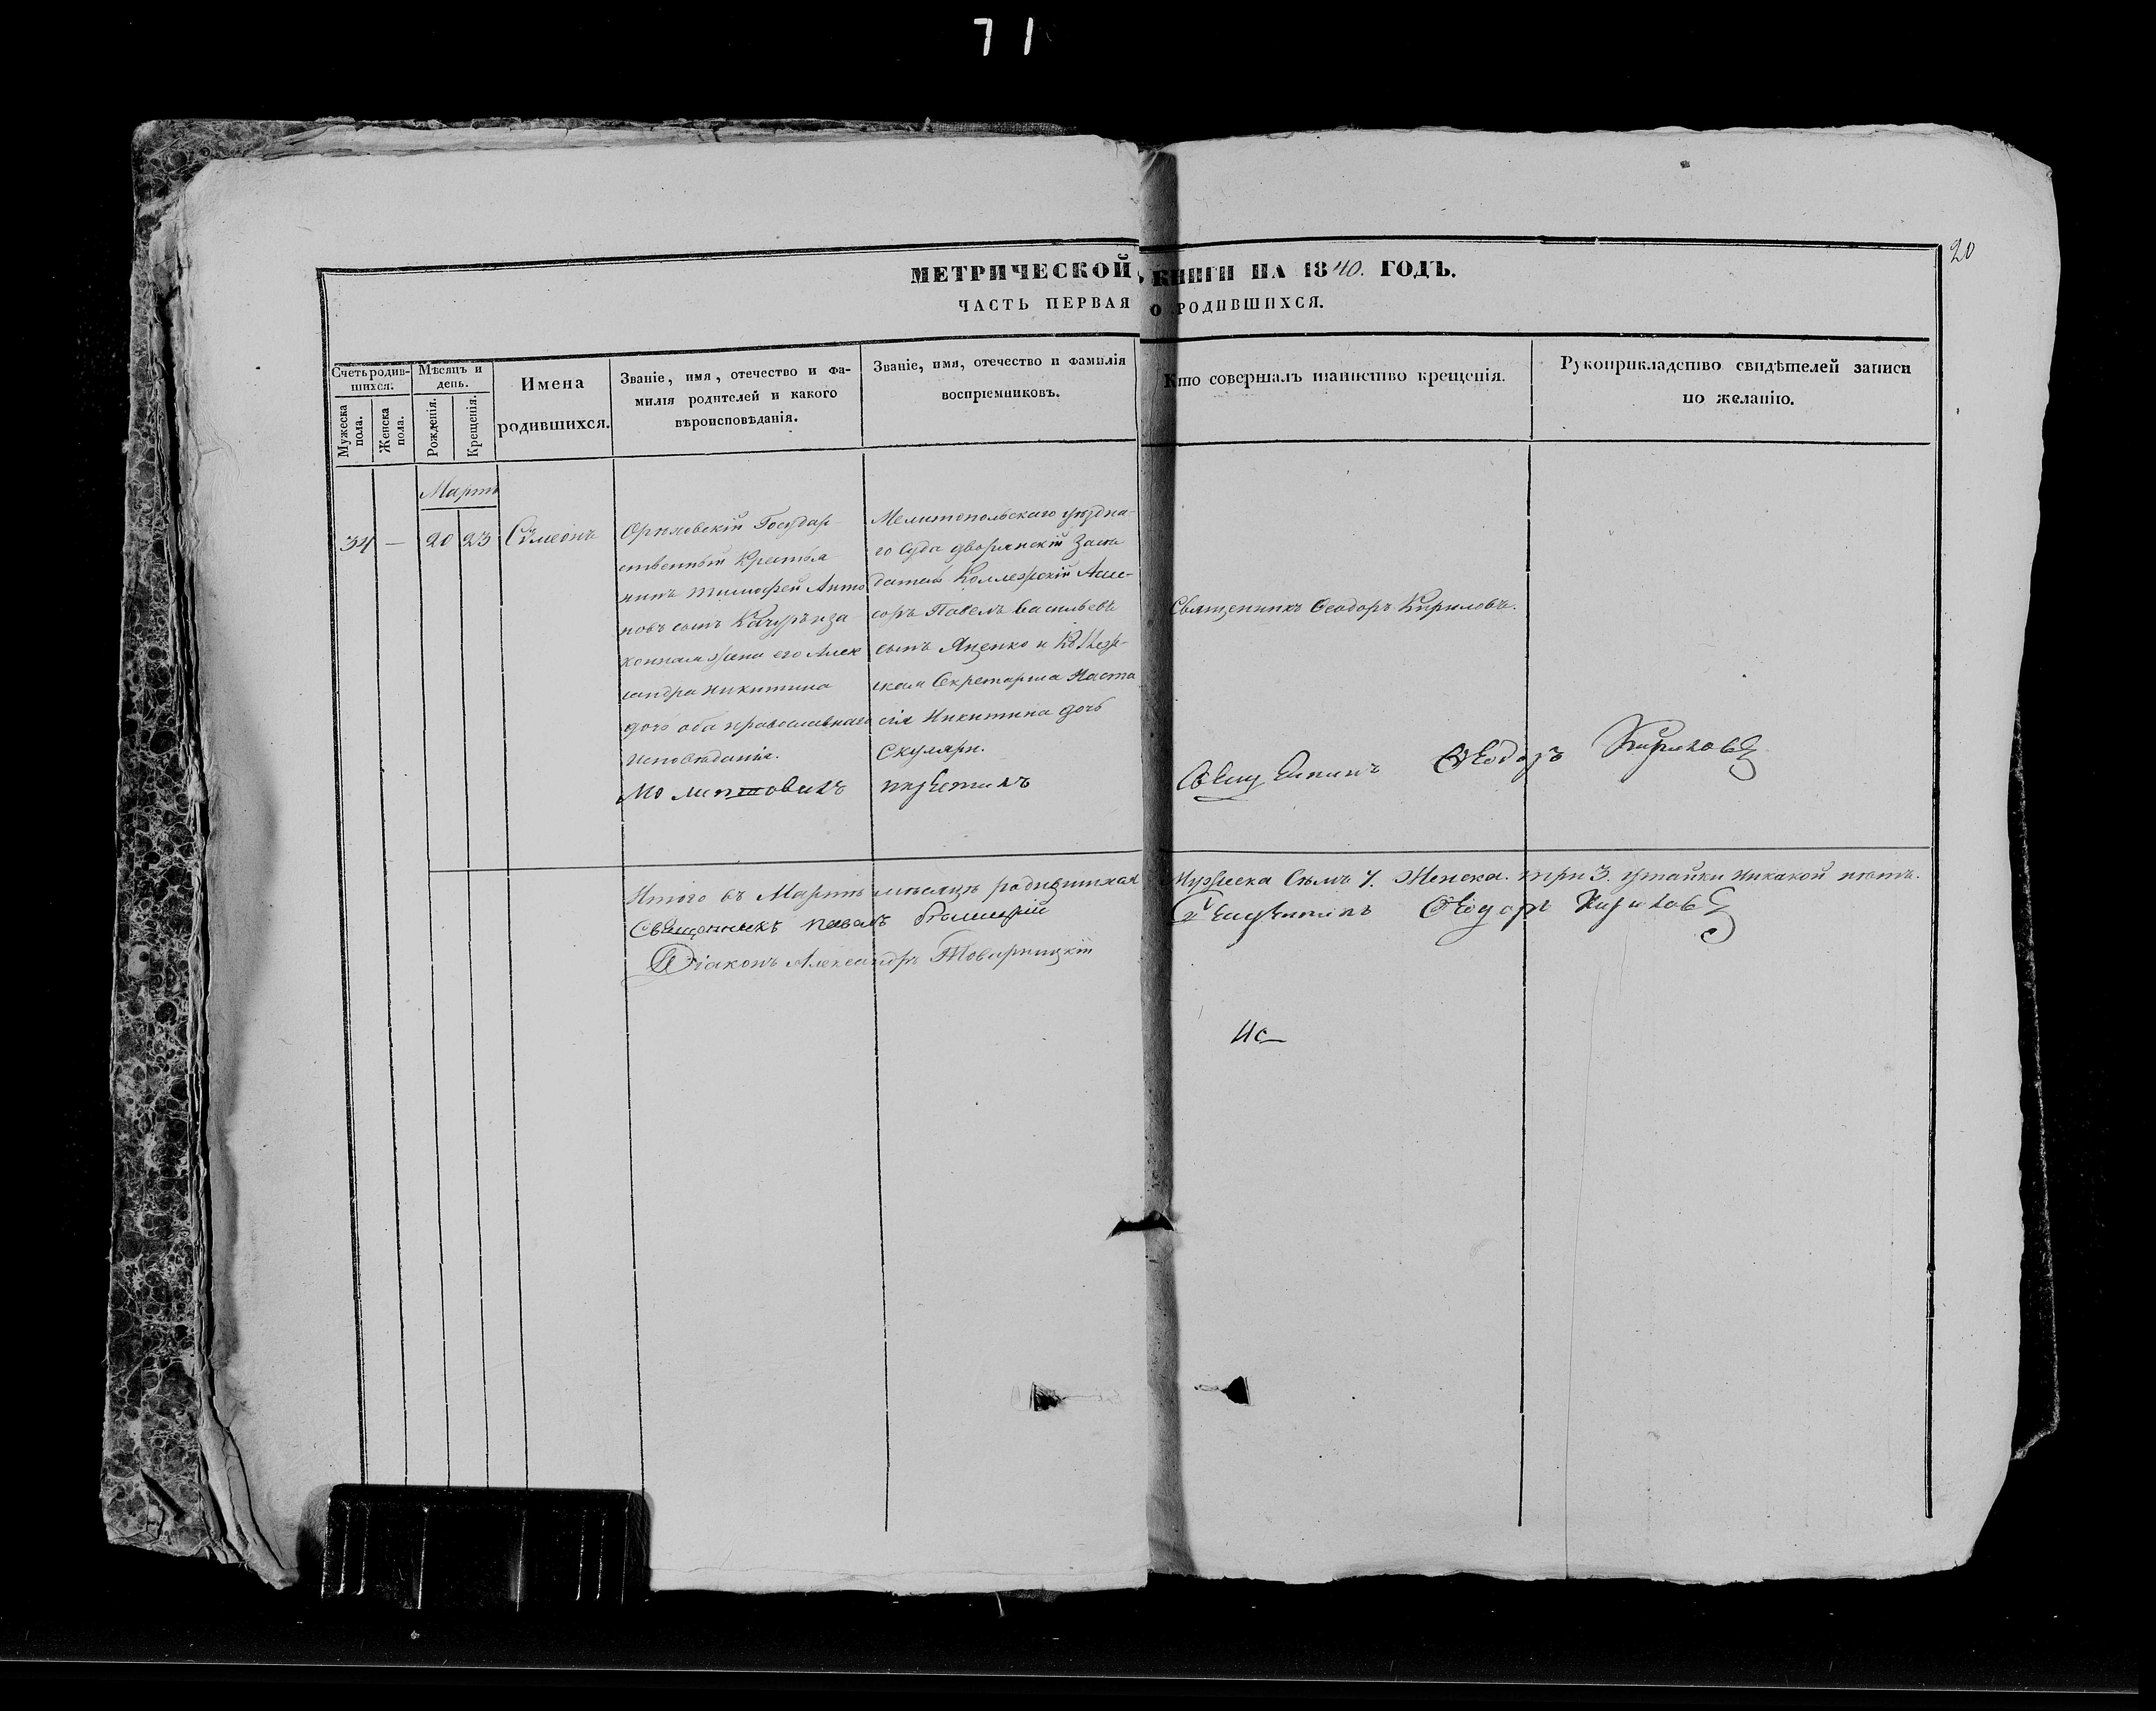 71
20
МЕТРИЧЕСКОЙ КНИГИ НА 1840. ГОДЪ.
ЧАСТЬ ПЕРВАЯ О РОДИВШИХСЯ.
Счетъ родив-
шихся.
Мужеска
пола.
Женска
пола.
Мѣсяцъ и
день.
Рожденія.
Крещенія.
Имена
родившихся.
Званіе, имя, отечество и фа-
милія родителей и какого
вѣроисповѣданія.
Званіе, имя, отечество и фамилія
воспріемниковъ.
Кто совершалъ таинство крещенія.
Рукоприкладство свидѣтелей записи
по желанію.
Мартъ
34 — 20 23 Сѵмеонъ
Орѣховскій Государ-
ственный Крестья
нинъ Тимофей Анто
новъ сынъ и за
конная жена его Алек
сандра Никитина
дочь оба православнаго
исповѣданія.
Мелитопольскаго уѣздна-
го Суда дворянскій Засѣ
датель Коллежскій Ассе-
соръ Павелъ Васильевъ
сынъ Яценко и Коллеж-
ская Секретарша Наста
сія Никитина дочь
Скуляри.
Священникъ Ѳеодоръ Кириловъ.
Молитвовалъ и крестилъ
Священникъ Ѳеодоръ Кириловъ
Итого въ Мартѣ мѣсяцѣ родившихся Мужеска Семь 7. Женска. три 3. утайки никакой нѣтъ.
Священникъ Павелъ
Священникъ Ѳеодоръ Кириловъ
Діаконъ Александръ